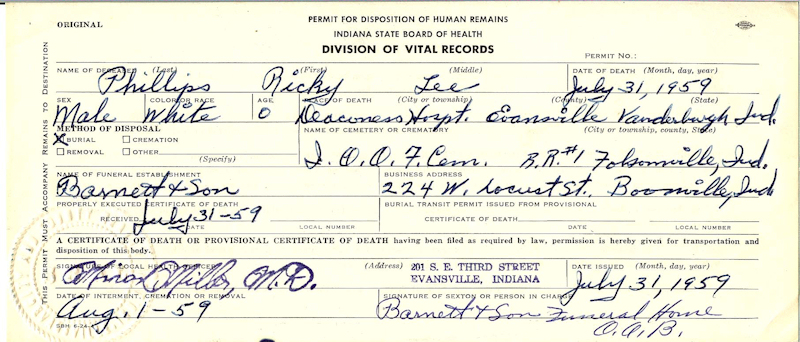 ORIGINAL
PERMIT FOR DISPOSITION OF HUMAN REMAINS
INDIANA STATE BOARD OF HEALTH
DIVISION OF VITAL RECORDS
PERMIT NO.:
THIS PERMIT MUST ACCOMPANY REMAINS TO DESTINATION
NAME OF DECEASED (Last) (First) (Middle) DATE OF DEATH (Month, day, year)
Phillips Ricky Lee July 31, 1959
SEX COLOR OR RACE AGE PLACE OF DEATH (City or township) (County) (State)
Male White 0 Deaconess Hospt. Evansville Vanderburgh Ind.
METHOD OF DISPOSAL NAME OF CEMETERY OR CREMATORY (City or township, county, State)
X BURIAL CREMATION
REMOVAL OTHER
(Specify)
I. O. O. F. Cem. R.R. #1 Folsomville, Ind.
NAME OF FUNERAL ESTABLISHMENT BUSINESS ADDRESS
Barnett & Son 224 W. Locust St., Boonville, Ind
PROPERLY EXECUTED CERTIFICATE OF DEATH BURIAL TRANSIT PERMIT ISSUED FROM PROVISIONAL
RECEIVED July 31-59 CERTIFICATE OF DEATH
DATE LOCAL NUMBER DATE LOCAL NUMBER
A CERTIFICATE OF DEATH OR PROVISIONAL CERTIFICATE OF DEATH having been filed as required by law, permission is hereby given for transportation and
disposition of this body.
SIGNATURE OF LOCAL HEALTH OFFICER (Address) 201 S. E. THIRD STREET DATE ISSUED (Month, day, year)
EVANSVILLE, INDIANA
Miller, M.D. July 31, 1959
DATE OF INTERMENT, CREMATION OR REMOVAL SIGNATURE OF SEXTON OR PERSON IN CHARGE
Aug. 1-59 Barnett & Son Funeral Home
O.A.B.
SBH 6-24-